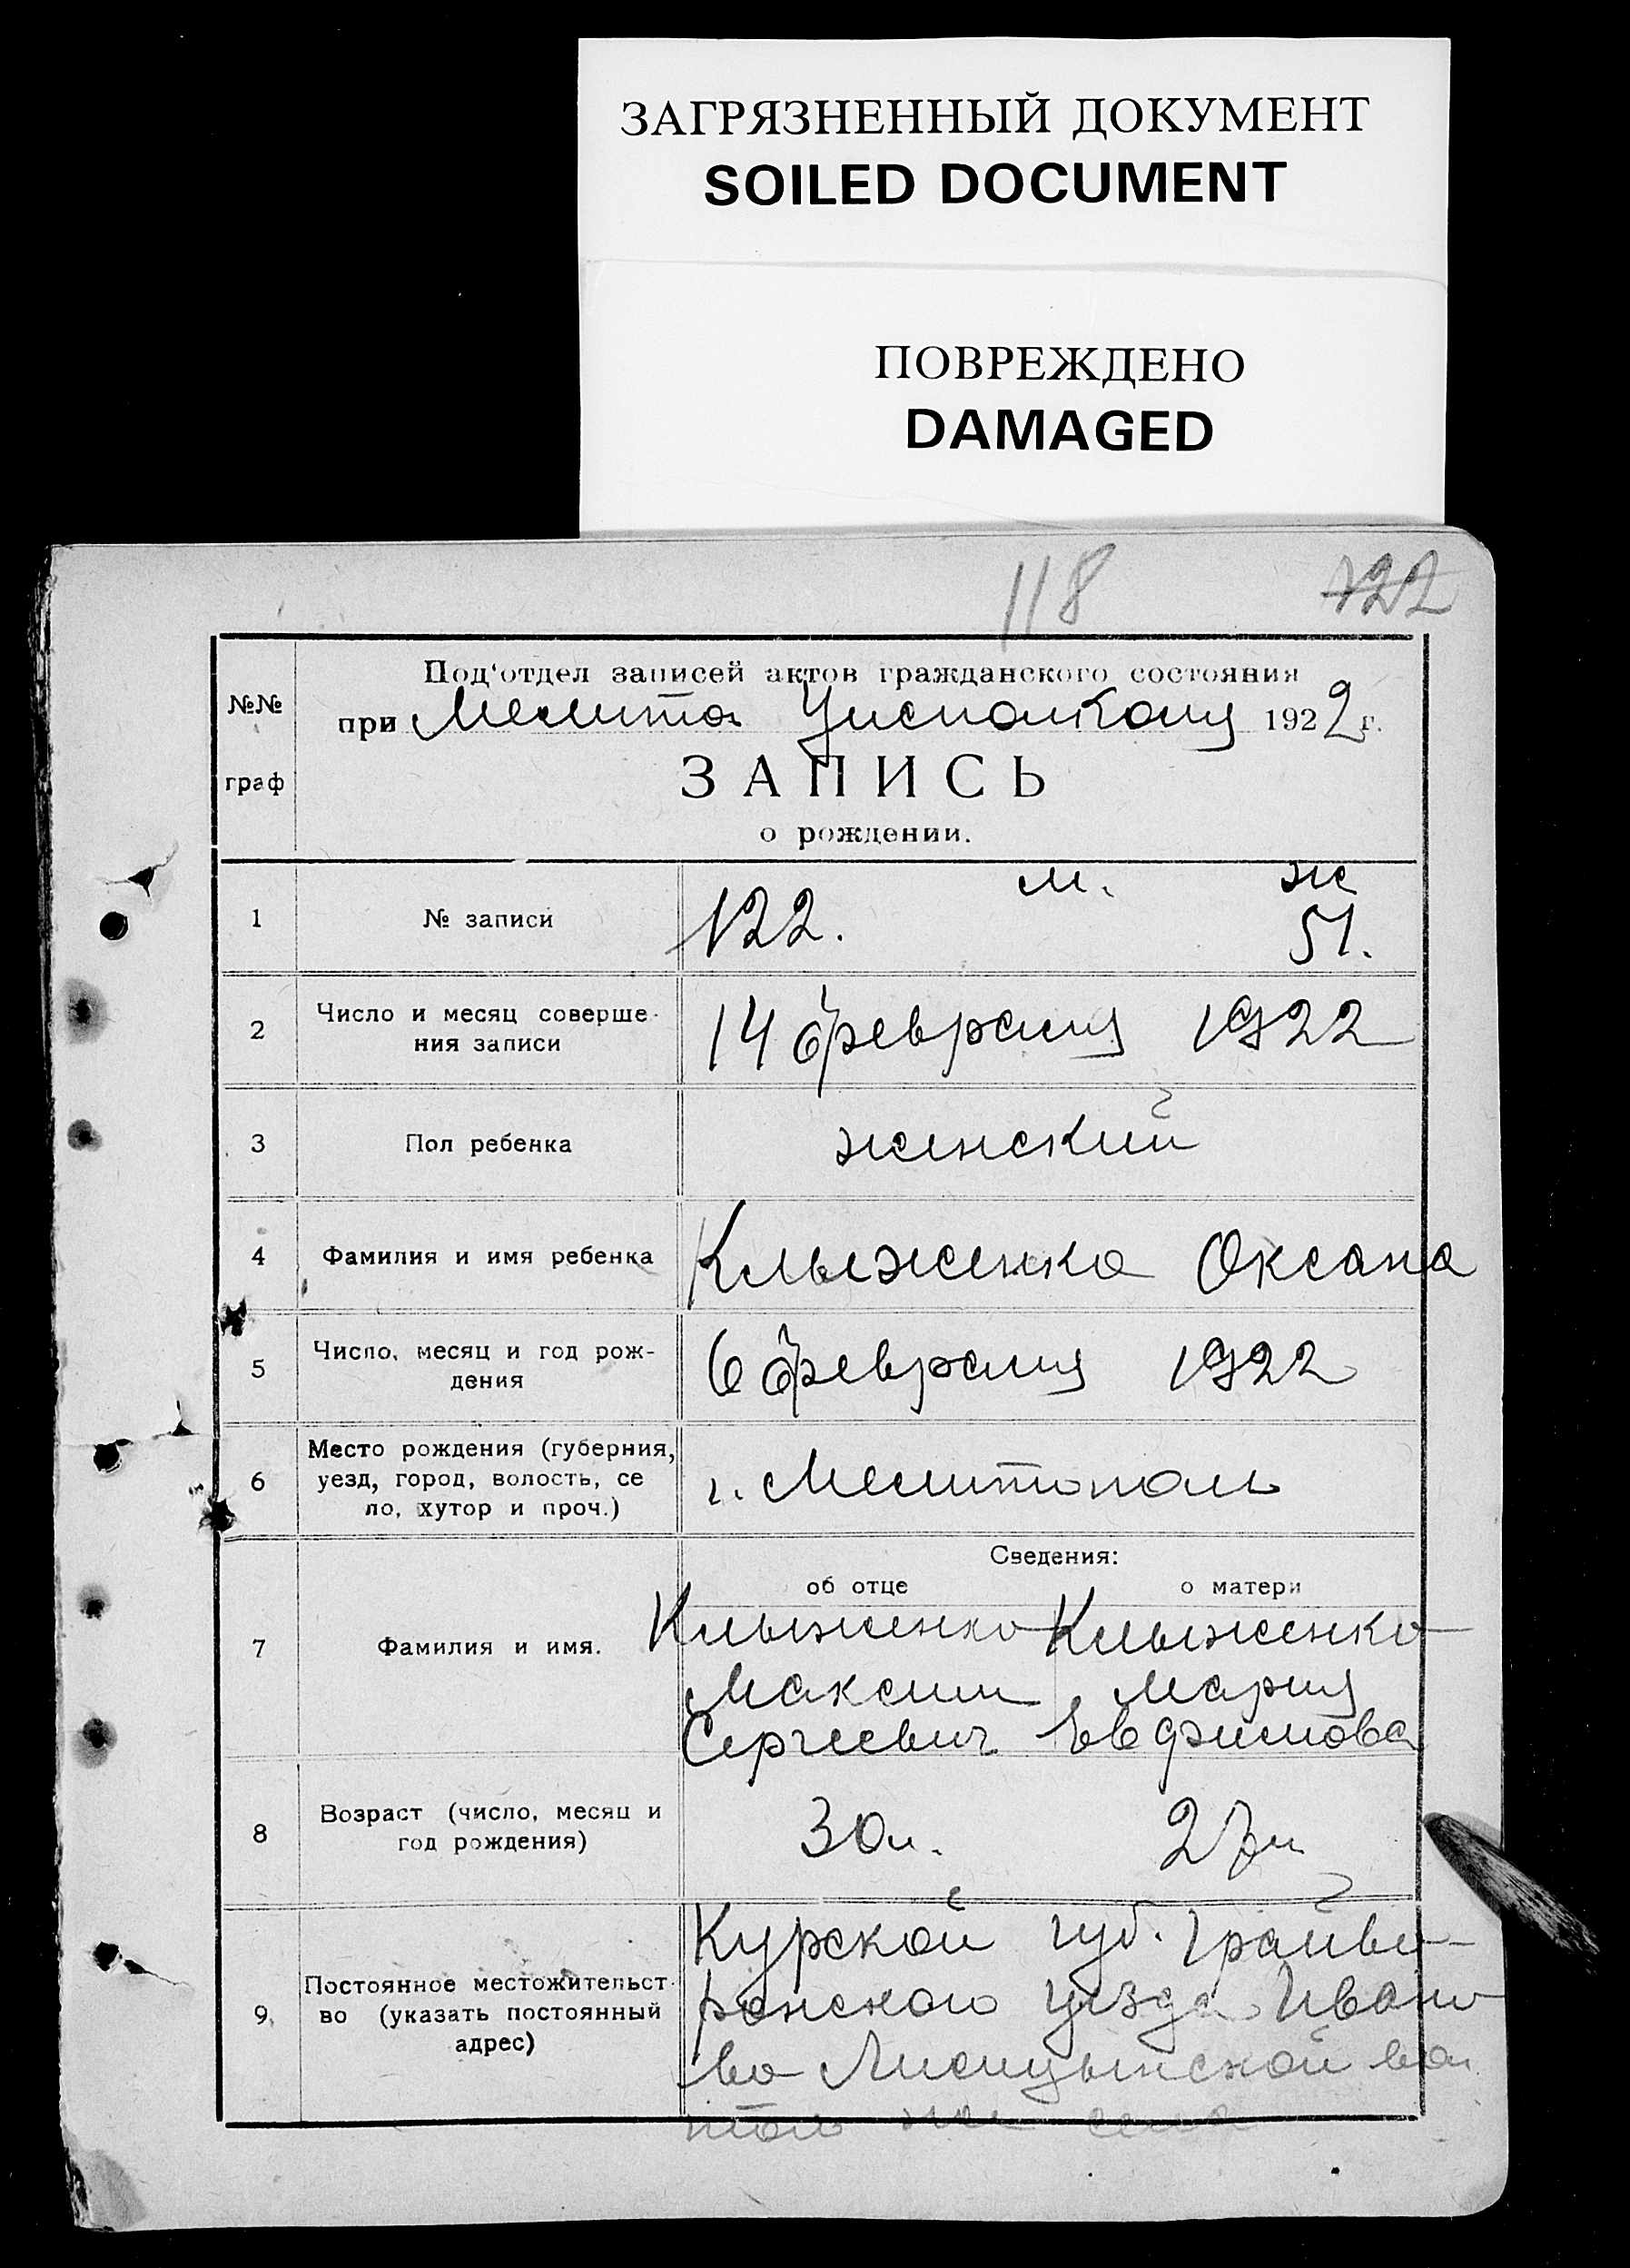 ЗАГРЯЗНЕННЫЙ ДОКУМЕНТ
SOILED DOCUMENT
ПОВРЕЖДЕНО
DAMAGED
118 122
№№ граф
Под'отдел записей актов гражданского состояния
при Мелита Уисполкому 1922 г.
ЗАПИСЬ
о рождении.
м. ж
1 № записи 122. 51.
2 Число и месяц соверше-
ния записи 14 февраля 1922
3 Пол ребенка женский
4 Фамилия и имя ребенка Клыженко Оксана
5 Число, месяц и год рож-
дения 6 февраля 1922
6 Место рождения (губерния,
уезд, город, волость, се
ло, хутор и проч.) г. Мелитополь
Сведения:
об отце о матери
7 Фамилия и имя. Клыженко Клыженко
Максим Мария
Сергеевич Евфимова
8 Возраст (число, месяц и
год рождения) 30 л. 27 л.
9. Постоянное местожительст-
во (указать постоянный
адрес)
Курской губ. Грайво-
ронского уезда Ивано
во Лисицынской вол
той же села